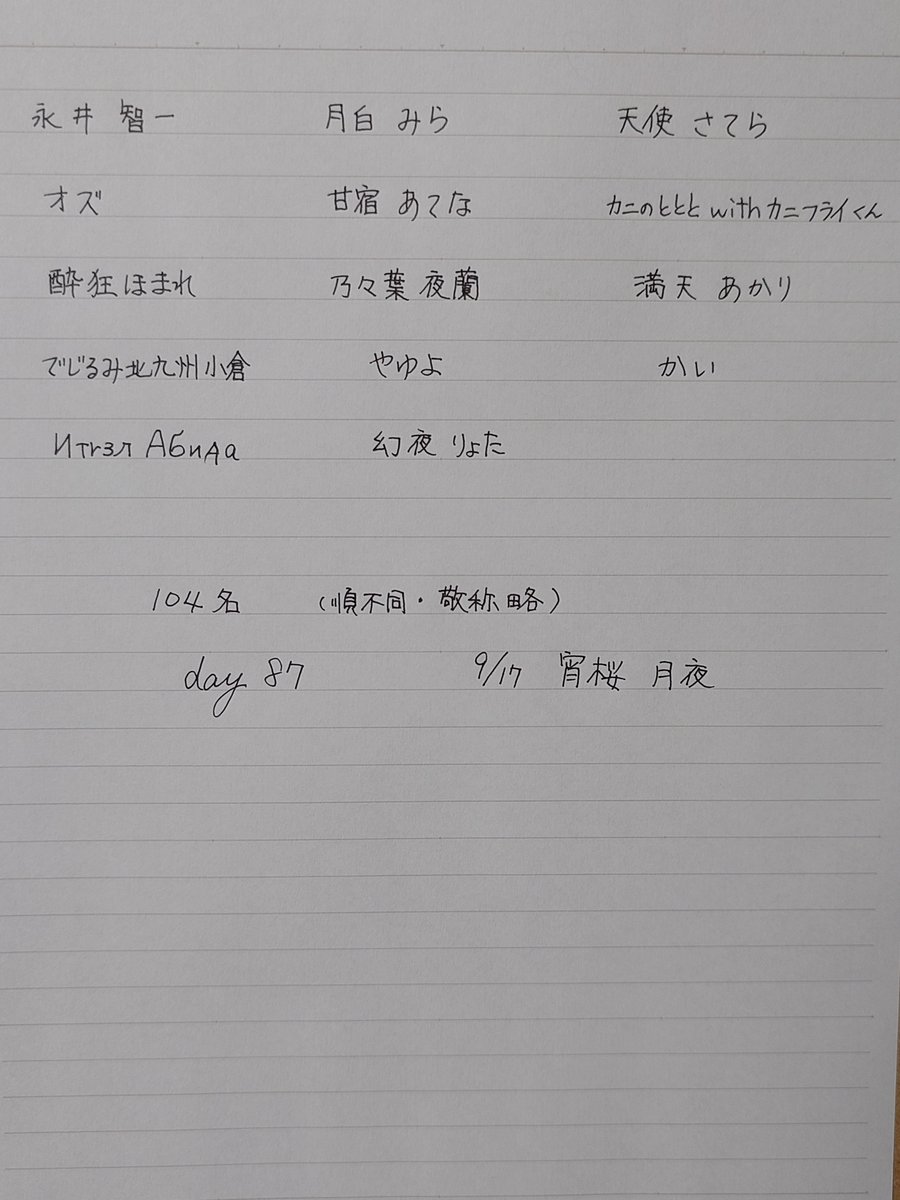 永井 智一 月白 みら 天使 さてら
オズ 甘宿 あてな カニのととと withカニフライくん
酔狂ほまれ 乃々葉 夜蘭 満天 あかり
でじるみ北九州小倉 やゆよ かい
Итгэл Абида 幻夜 りょた
104名 (順不同・敬称略)
day 87 9/17 宵桜 月夜